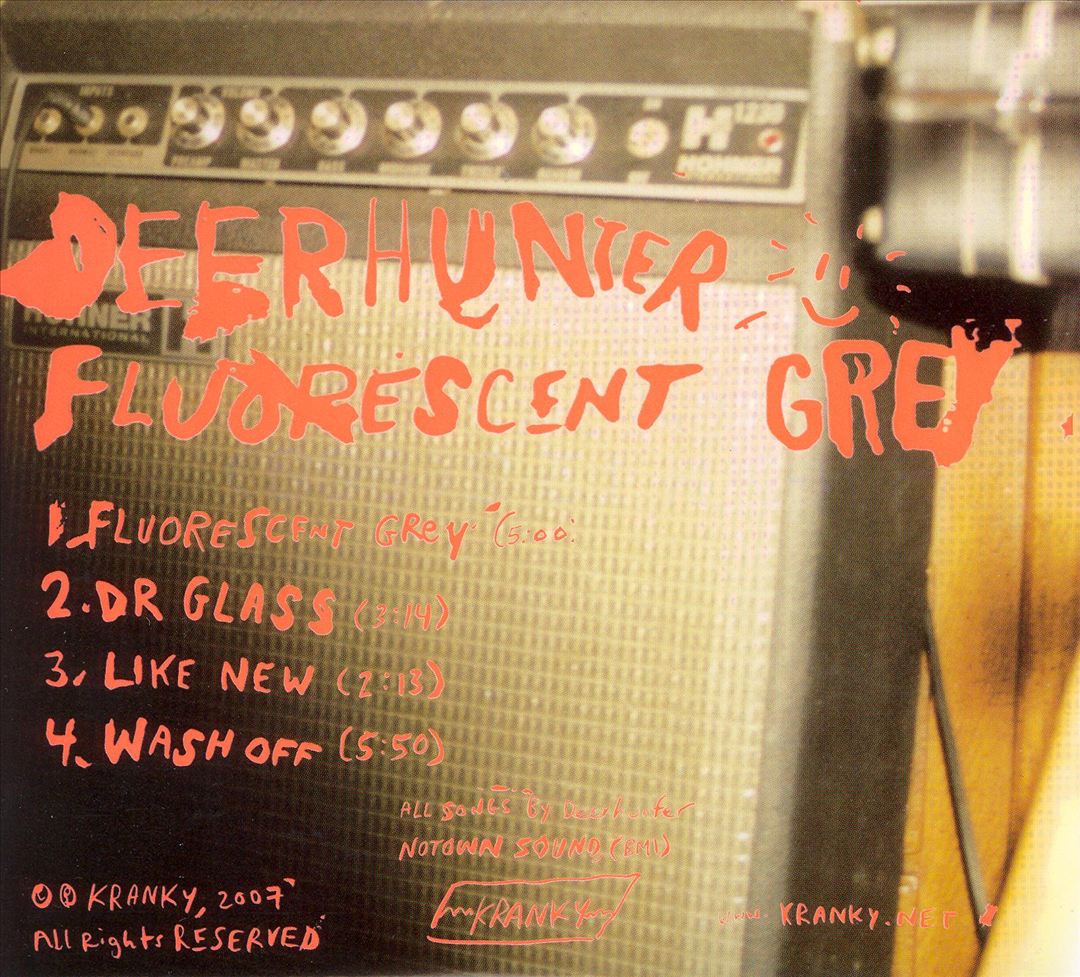 INPUTS
H 1230
HOHNER
DEERHUNTER
HOHNER
INTERNATIONAL
FLUORESCENT GREY
1. FLUORESCENT GREY (5:00)
2. DR GLASS (3:14)
3. LIKE NEW (2:13)
4. WASH OFF (5:50)
ALL SONGS By Deerhunter
NOTOWN SOUND (BMI)
© ℗ KRANKY, 2007
KRANKY
www. KRANKY.NET
All Rights RESERVED